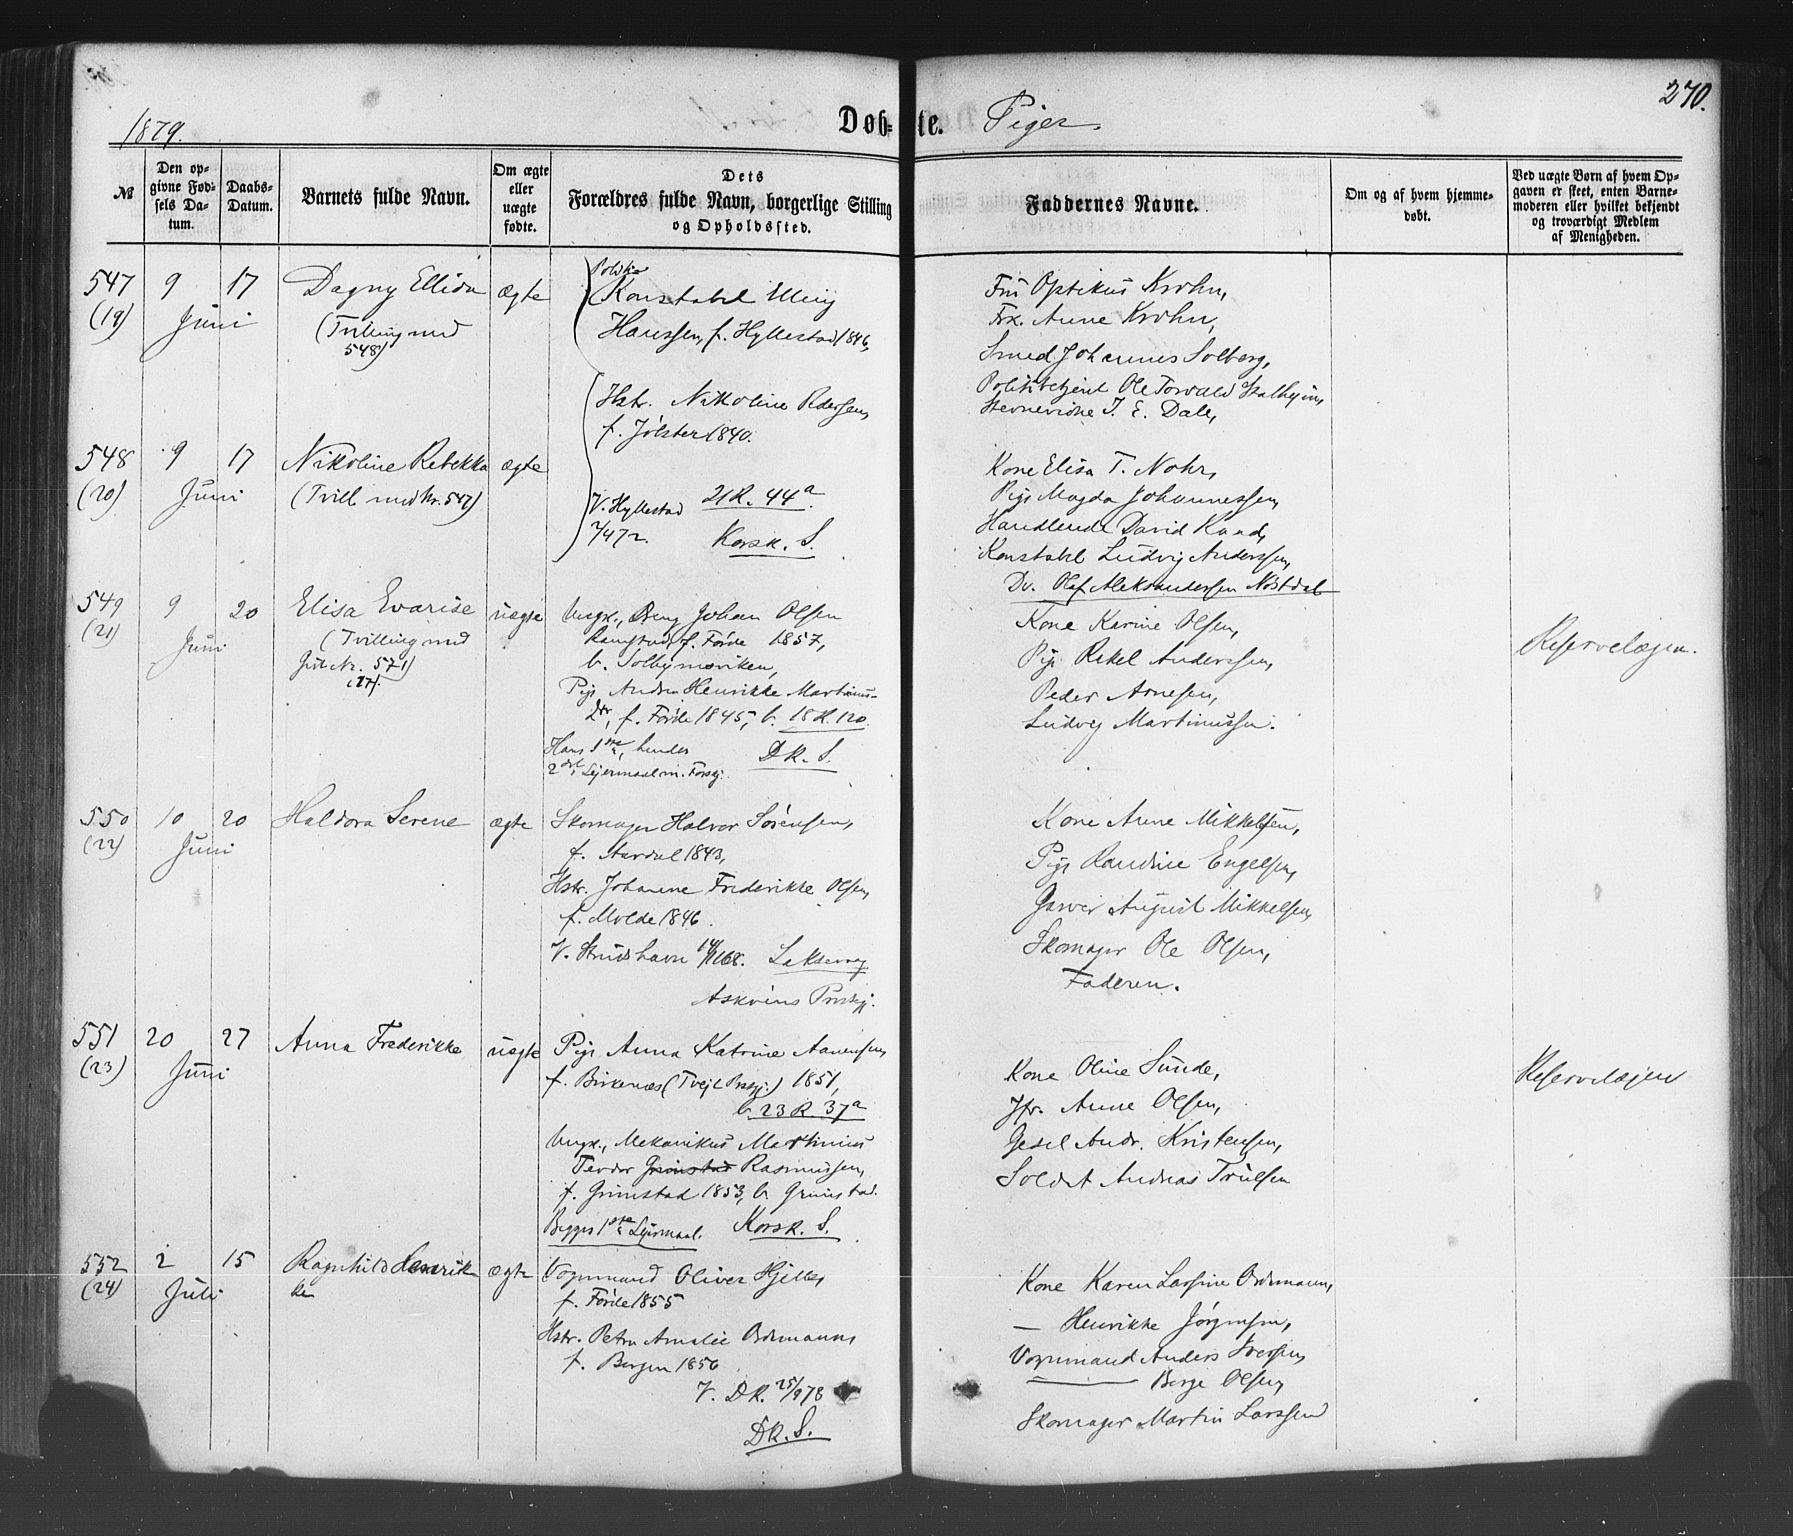 270.
1879.
Døb-te. Piger.
№
Den op-
givne Fød-
sels Da-
tum.
Daabs-
Datum.
Barnets fulde Navn.
Om ægte
eller
uægte
fødte.
Dets
Forældres fulde Navn, borgerlige Stilling
og Opholdssted.
Faddernes Navne.
Om og af hvem hjemme-
døbt.
Ved uægte Børn af hvem Op-
gaven er skeet, enten Barne-
moderen eller hvilket bekjendt
og troværdigt Medlem
af Menigheden.
547
(19)
9 17
Juni
Dagny Ellida
(Tvilling med
548)
ægte
Konstabel
Hanssen, f. Hyllestad 1846,
Hstr. Nikoline Pedersen,
f. Jølster 1840.
V. Hyllestad
21 R. 44a
Korsk. S.
Fru Optikus Krohn,
Frk. Anne Krohn,
Smed Johannes Solberg,
Politibetjent Ole Torvald
Stevnevidne I. E. Dale,
548
(20)
9 17
Juni
Nikoline Rebekka
(Tvill. med Nr. 547)
ægte
Kone Elisa T. Nohr,
Pige Magda Johannessen,
Handlende David
Konstabel Ludvig Anderssen,
Dv. Olaf Aleksandersen Nøstdal
549
(21)
9 20
Juni
Elisa Evarise
(Tvilling med
Nr. 571)
(27).
uægte
Ungk., Dreng Johan Olsen
f. Førde 1857,
b. Solheimsviken,
Pige Andrea Henrikke Martinus-
Dtr, f. Førde 1845, b. 18 R. 120.
Hans 1ste, hendes
2det Lejermaal m. Forskj.
DK. S.
Kone Karine Olsen,
Pige Rakel Anderssen,
Peder Arnesen,
Ludvig Martinussen.
Reservelægen.
550
(22)
10 20
Juni
Haldora Serene
ægte
Skomager Halvor Sørensen,
f. Aardal 1843,
Hstr. Johanne Frederikke Olsen,
f. Molde 1846.
V. Strudshavn 14/1168. Laksevaag
Askøens Prstgj.
Kone Anne Mikkelsen,
Pige Randine Engelsen,
Garver August Mikkelsen,
Skomager Ole Olsen,
Faderen.
551
(23)
20 27
Juni
Anna Frederikke
uægte
Pige Anna Katrine Aanensen
f. Birkenæs (Tveit Prstgj.) 1851,
b. 23 R. 37a
Ungk., Mekanikus Martinius
Tevdor Grimstad Rasmussen,
f. Grimstad 1853, b. Grimstad.
Begges 1ste Lejermaal. Korsk. S.
Kone Oline Sunde,
Jfr. Anne Olsen,
Gesel Andr. Kristensen,
Soldat Andreas Trulsen
Reservelægen
552
(24)
2 15
Juli
Ragnhild Henrik
ke
ægte
Vognmand Oliver Hjelle,
f. Førde 1855
Hstr. Petra Amalie Ordemann,
f. Bergen 1856
V. DK. 25/978
DK. S.
Kone Karen Lassine Ordemann,
— Henrikke Jørgensen,
Vognmand Anders Iversen,
— Berge Olsen,
Skomager Martin Larssen